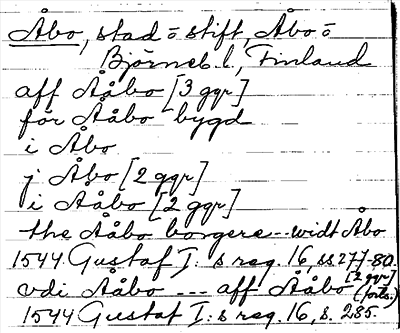 Åbo, stad o stift, Åbo o
Björneb. l., Finland
aff Aåbo [3 ggr]
för Aåbo bygd
i Åbo
j Åbo [2 ggr]
i Aåbo [2 ggr]
the Aåbo borgere -- widt Åbo
1544 Gustaf I:s reg. 16, ss. 277-80.
vdi Aåbo --- aff Aåbo [2 ggr] (forts.)
1544 Gustaf I:s reg. 16, s. 285.